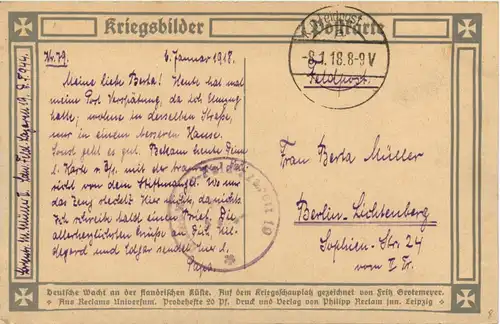 Kriegsbilder Postkarte
K.D. Feldpost
-8.1.18.8-9V
Feldpost.
Nr. 79. 6. Januar 1918.
Meine liebe Berta! Heute hat mal
meine Post Verspätung, da ich Umzug
hatte; wohne in derselben Straße,
nur in einem besseren Hause.
Sonst geht es gut. Bekam heute Deine
l. Karte v. 2/1. mit der traurigen
nicht von dem Stiftmangel. Wo nur
das Zeug steckt? Hier nicht, da nichts
Ich schreib bald einen Brief. Die
allerherzlichsten Grüße an Dich, Hil-
degard und Edgar sendet Euer l.
Papa.
Frau Berta Müller
Berlin-Lichtenberg
Sophien-Str. 24
vorn II Tr.
Deutsche Wacht an der flandrischen Küste. Auf dem Kriegsschauplatz gezeichnet von Fritz Grotemeyer.
Aus Reclams Universum. Probehefte 20 Pf. Druck und Verlag von Philipp Reclam jun. Leipzig